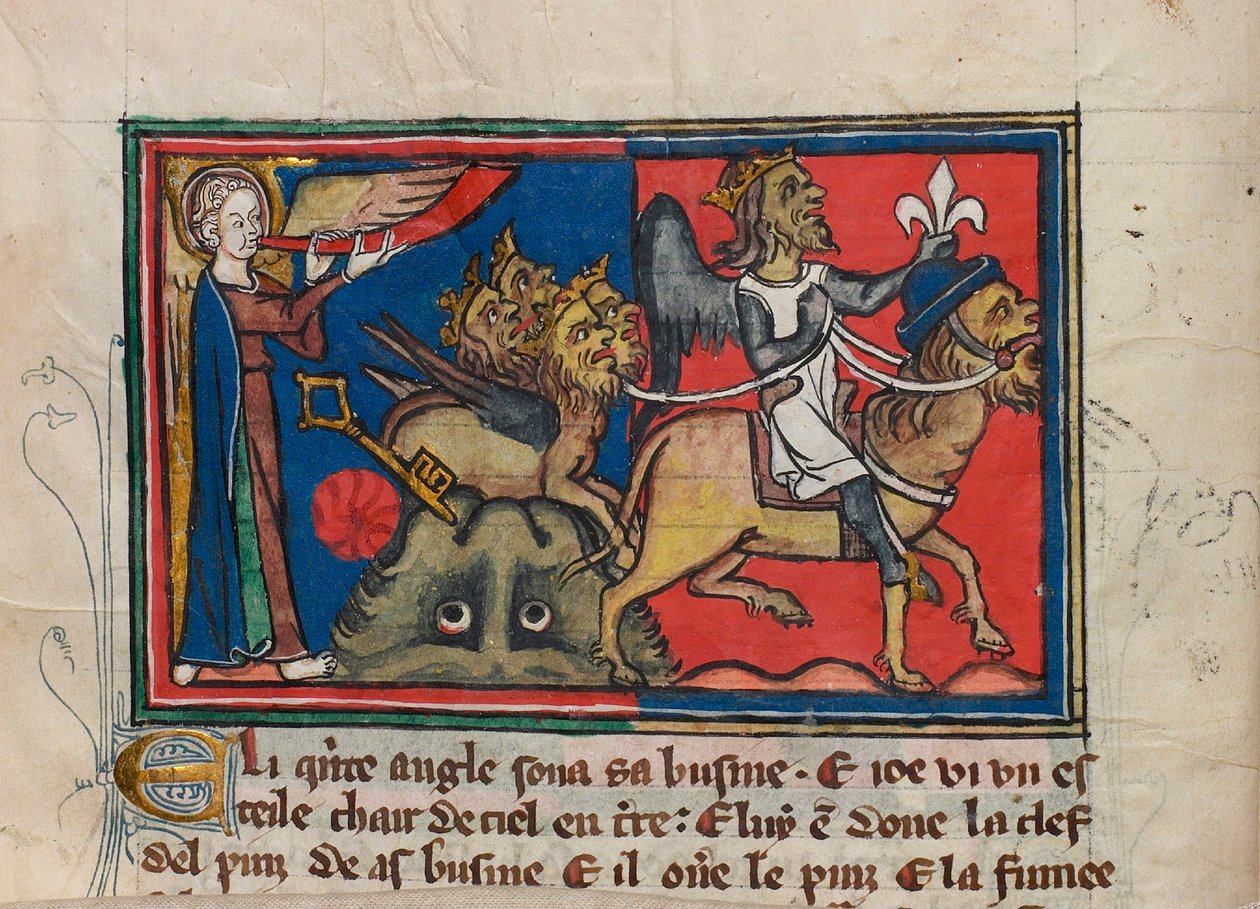 E li q̃nte angle sona sa busine · E ioe vi vn es
teile chair de ciel en t̃re: E luy ẽ done la clef
del puiz de as busme E il oũe le puiz E la fumee